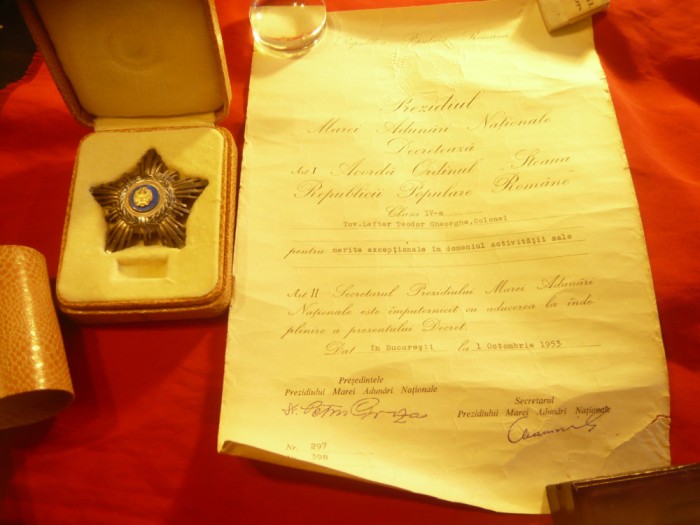 Prezidiul
Marei Adunări Naționale
Decretează
Art I Acordă Ordinul Steaua
Republicii Populare Române
Clasa IV-a
Tov.Lefter Teodor Gheorghe,Colonel
pentru merite excepționale în domeniul activității sale
Art II Secretarul Prezidiului Marei Adunări
Naționale este împuternicit cu aducerea la înde
plinire a prezentului Decret.
Dat în București la 1 Octombrie 1953
Președintele
Prezidiului Marei Adunări Naționale
Secretarul
Prezidiului Marei Adunări Naționale
Nr. 297
598